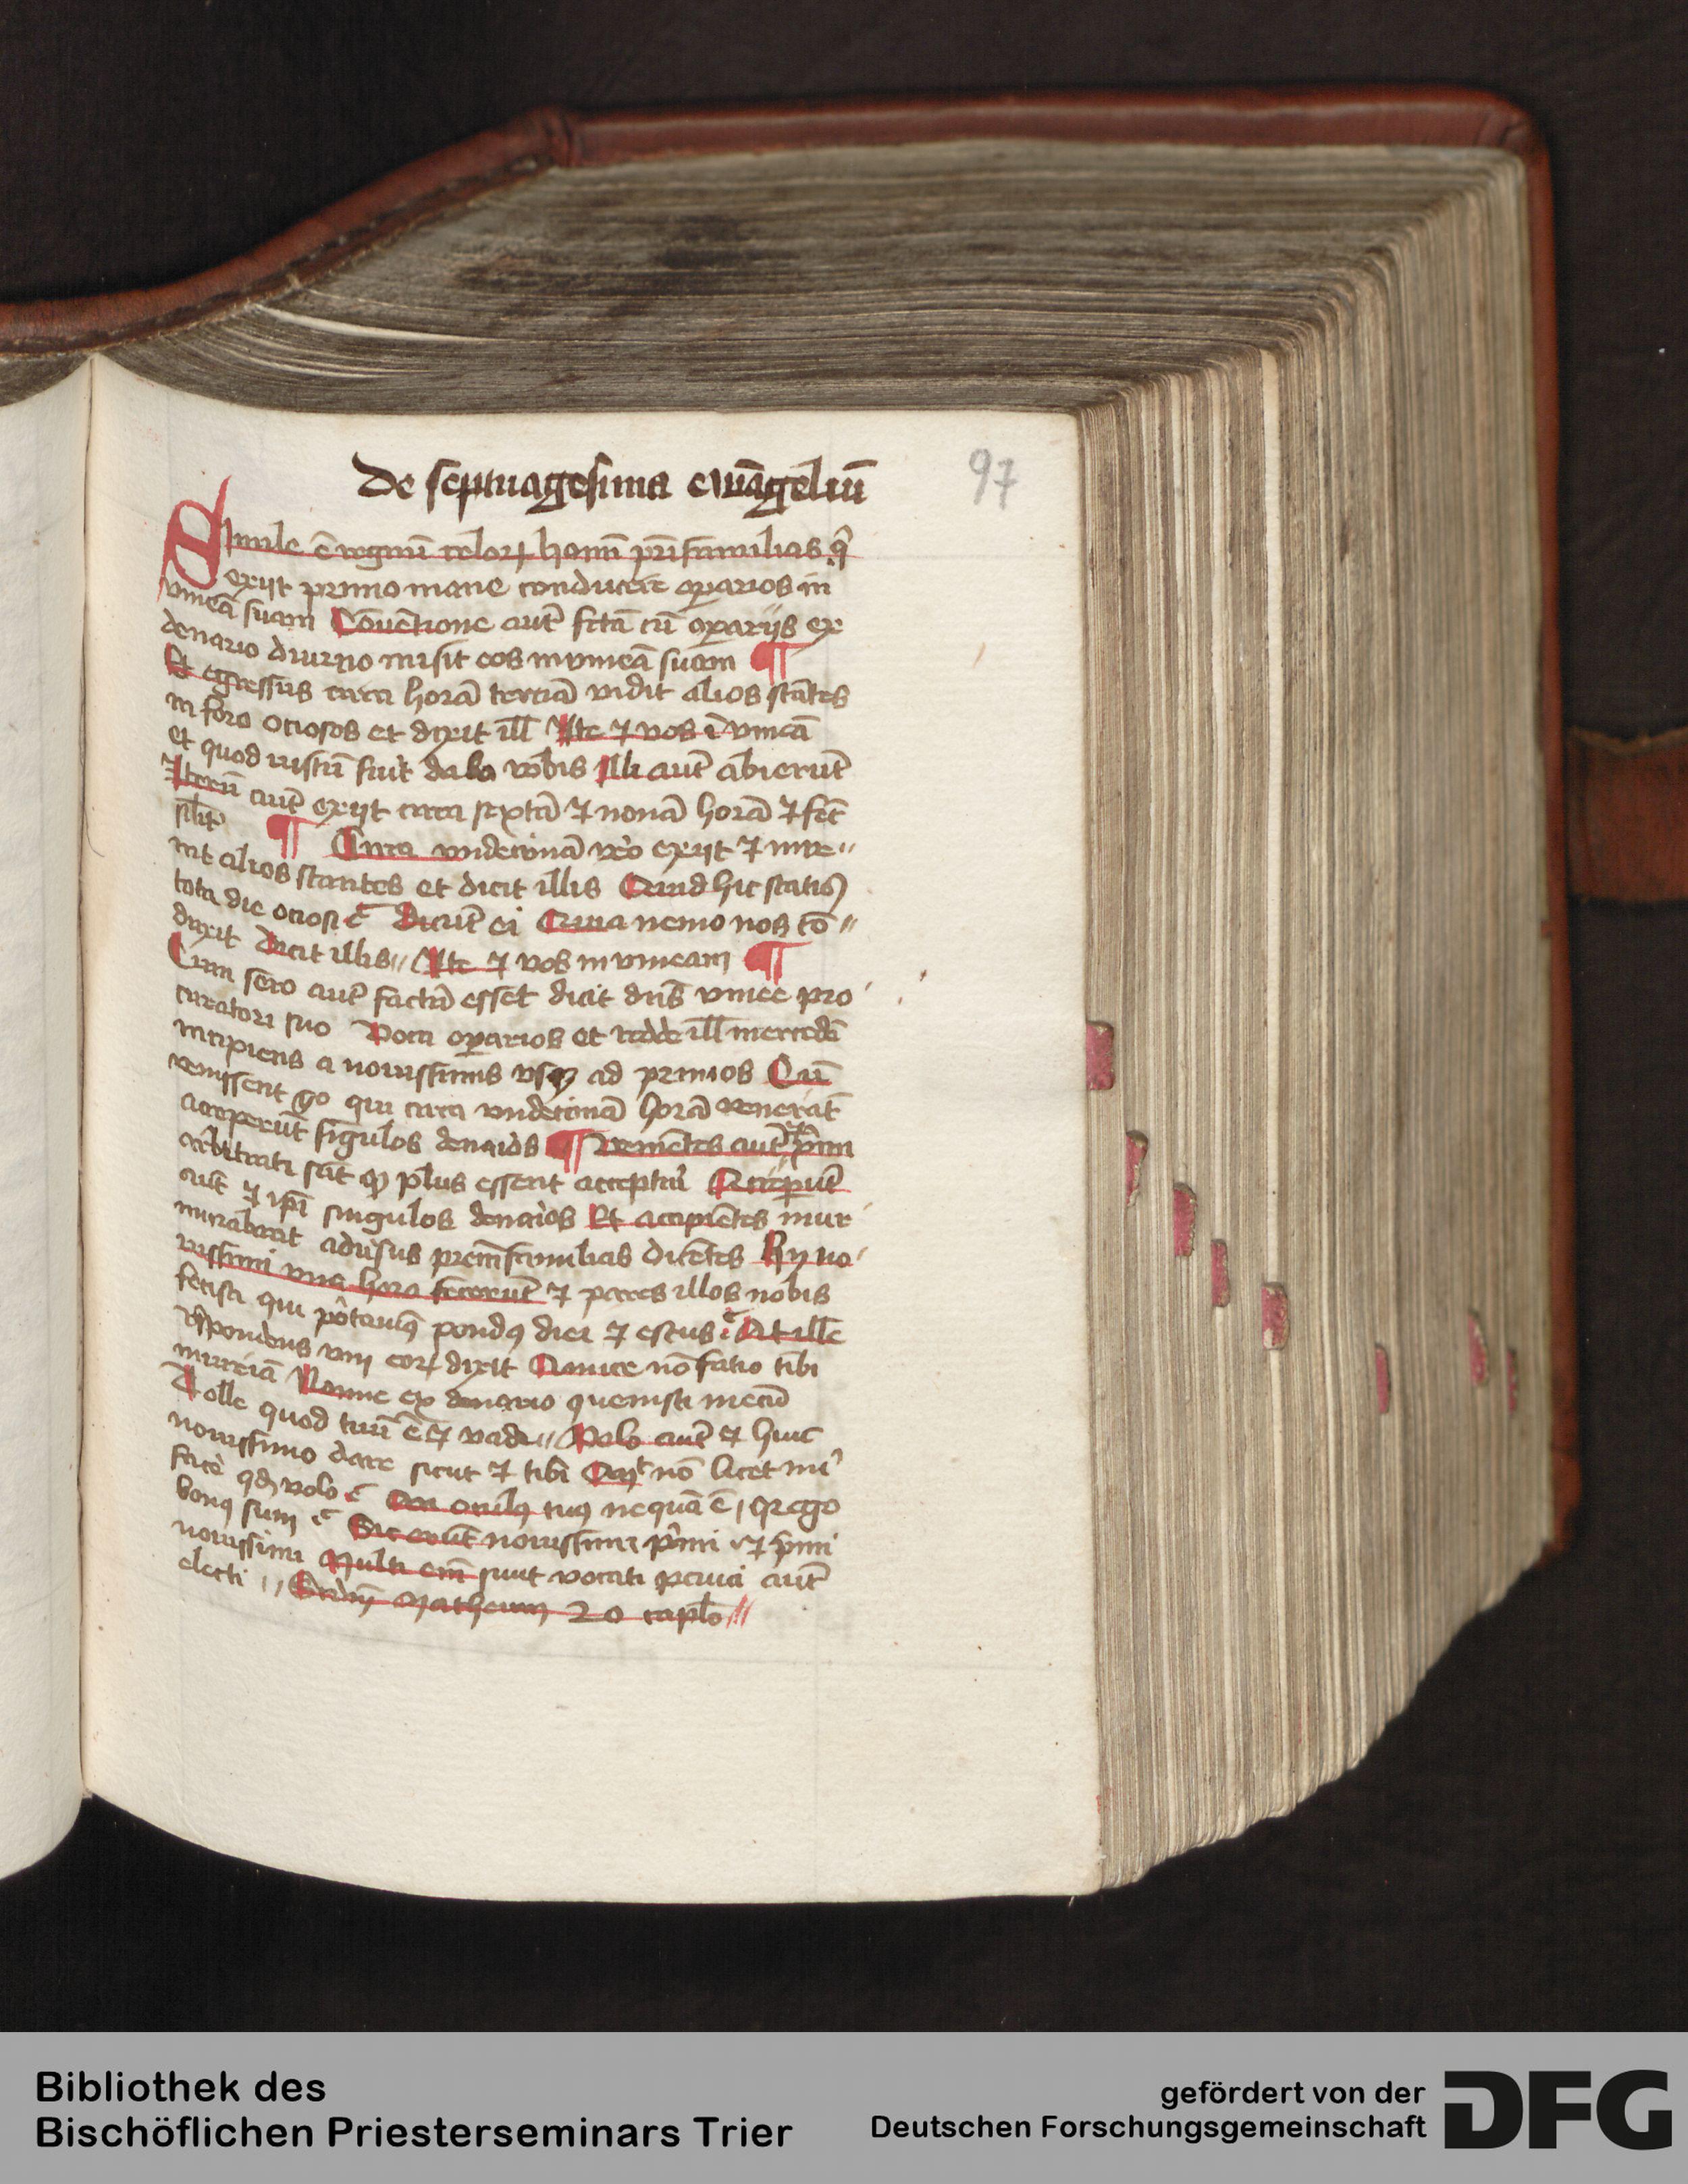 De septuagesima ewãgeliũ
97
Simile ẽ regnũ celorꝝ homĩ prĩfamilias qͥ
exijt primo mane conducere oꝑarios in
vineã suam Cõuẽtione autẽ fctã cũ oꝑarijs ex
denario diurno misit eos in vineã suam ¶
Et egressus circa horã terciã vidit alios stãtes
in foro ociosos et dixit ill̃ Ite ⁊ vos ĩ vineã
et quod iustũ fuit dabo vobis Illi autẽ abierũt
Iterũ autẽ exijt circa sextã ⁊ nonã horã ⁊ fec̃
silit̾ ¶ Circa vndecimã v̾o exijt ⁊ inue〃
nit alios stantes et dicit illis Quid hic statis
tota die ociosi Dicũt ei Quia nemo nos cõ〃
duxit Dicit illis〃 Ite ⁊ vos in vineam ¶
Cum sero autẽ factũ esset dicit dñs vinee pro
curatori suo Voca oꝑarios et redde ill̃ mercedẽ
incipiens a nouissimis vsqꝫ ad primos Cũ
venissent g̊o qui circa vndecimã horã venerãt
acceperũt sĩgulos denarios ¶ Veniẽtes autẽ ⁊ pͥmi
arbitrati sũt ꝙ plus essent acceptur̾ Acceperũt
aũt ⁊ ipĩ singulos denarios Et accipiẽtes mur
murabant adũsus prẽmfamilias dicẽtes Hij no
uissimi vna hora fecerũt ⁊ pares illos nobis
fecisti qui portauimꝰ pondꝰ diei ⁊ estus At ille
rñpondens vni eorꝝ dixit Amice nõ facio tibi
iniuriã Nonne ex denario ꝯuenisti mecũ
Tolle quod tuũ ẽ ⁊ vade〃 Volo autẽ ⁊ huic
nouissimo dare sicut ⁊ tibi Aut nõ licet mͥ
facẽ qđ volo An oculꝰ tuꝰ nequã ẽ qꝛ ego
bonꝰ sum Sic erũt nouissimi pͥmi ⁊ pͥmi
nouissimi Multi em̃ sunt vocati pauci autẽ
electi 〃 Scdm̃ Matheum 20 caplo〃
Bibliothek des
Bischöflichen Priesterseminars Trier
gefördert von der
Deutschen Forschungsgemeinschaft
DFG